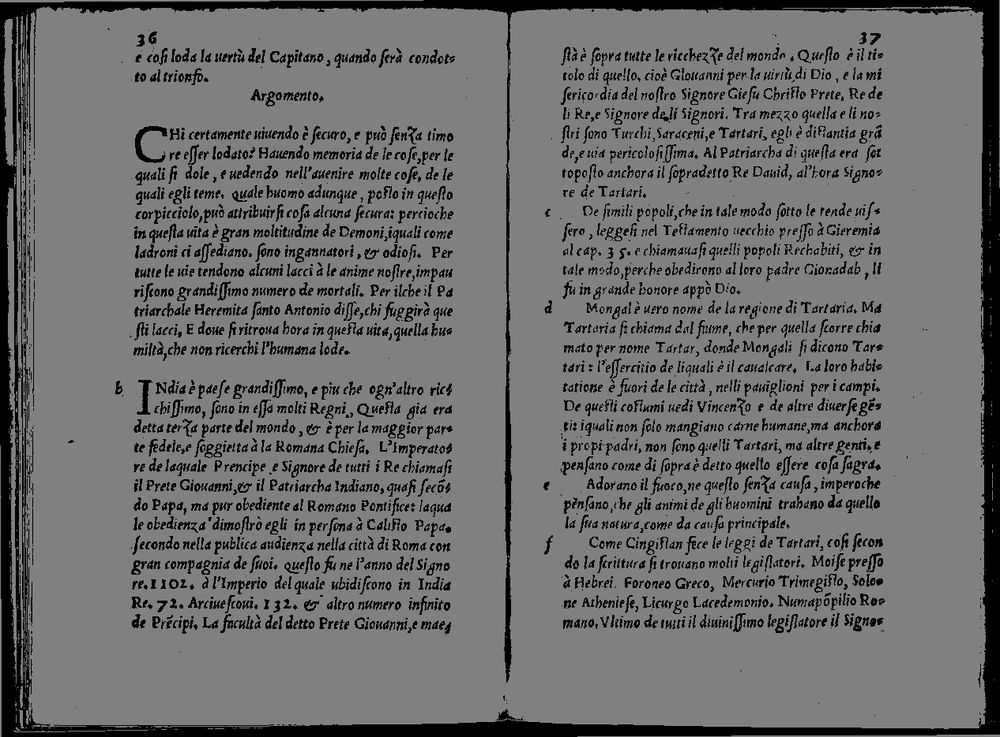 36
e cosi loda la uertù del Capitano, quando serà condot-
to al trionfo.
Argomento.
CHi certamente uiuendo è securo, e può senza timo
re esser lodato? Hauendo memoria de le cose, per le
quali si dole, e uedendo nell'auenire molte cose, de le
quali egli teme. quale huomo adunque, posto in questo
corpicciolo, può attribuirsi cosa alcuna secura: percioche
in questa uita è gran moltitudine de Demoni, iquali come
ladroni ci assediano. sono ingannatori, & odiosi. Per
tutte le uie tendono alcuni lacci à le anime nostre, impau
riscono grandissimo numero de mortali. Per ilche il Pa
triarchale Heremita santo Antonio disse, chi fuggirà que
sti lacci. E doue si ritroua hora in questa uita, quella hu-
miltà, che non ricerchi l'humana lode.
b INdia è paese grandissimo, e piu che ogn'altro ric-
chissimo, sono in essa molti Regni., Questa gia era
detta terza parte del mondo, & è per la maggior par-
te fedele, e soggietta à la Romana Chiesa. L'Imperato-
re de laquale Prencipe e Signore de tutti i Re chiamasi
il Prete Giouanni, & il Patriarcha Indiano, quasi secō-
do Papa, ma pur obediente al Romano Pontifice: laqua
le obedienza dimostrò egli in persona à Calisto Papa.
secondo nella publica audienza nella città di Roma con
gran compagnia de suoi. questo fu ne l'anno del Signo
re. 1102. à l'Imperio del quale ubidiscono in India
Re. 72. Arciuescoui. 132. & altro numero infinito
de Prēcipi. La facultà del detto Prete Giouanni, e mae-
37
stà è sopra tutte le ricchezze del mondo. Questo è il ti-
tolo di quello. cioè Giouanni per la uirtù di Dio, e la mi
sericordia del nostro Signore Giesu Christo Prete. Re de
li Re, e Signore de li Signori. Tra mezzo quella e li no-
stri sono Turchi, Saraceni, e Tartari, egli è distantia grā
de, e uia pericolosissima. Al Patriarcha di questa era sot
toposto anchora il sopradetto Re Dauid, al'hora Signo-
re de Tartari.
c De simili popoli, che in tale modo sotto le tende uis-
sero, leggesi nel Testamento uecchio presso à Gieremia
al cap. 35. e chiamauasi quelli popoli Rechabiti, & in
tale modo, perche obedirono al loro padre Gionadab, li
fu in grande honore appò Dio.
d Mongal è uero nome de la regione di Tartaria. Ma
Tartaria si chiama dal fiume, che per quella scorre chia
mato per nome Tartar, donde Mongali si dicono Tar-
tari: l'essercitio de liquali è il caualcare. La loro habi-
tatione è fuori de le città, nelli pauiglioni per i campi.
De questi costumi uedi Vincenzo e de altre diuerse gē-
ti: iquali non solo mangiano carne humane, ma anchora
i propi padri, non sono quelli Tartari, ma altre genti, e
pensano come di sopra è detto quello essere cosa sagra.
e Adorano il fuoco, ne questo senza causa, imperoche
pensano, che gli animi de gli huomini trahano da quello
la sua natura, come da causa principale.
f Come Cingistan fece le leggi de Tartari, cosi secon
do la scrittura si trouano molti legislatori. Moise presso
à Hebrei. Foroneo Greco, Mercurio Trimegisto, Solo-
ne Atheniese, Licurgo Lacedemonio. Numapōpilio Ro-
mano. Vltimo de tutti il diuinissimo legislatore il Signo-